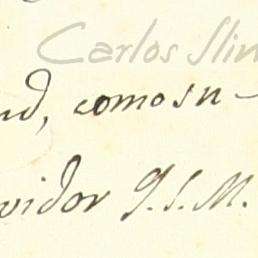 Carlos Slim
ud, comosu-
vidor Q.S.M.